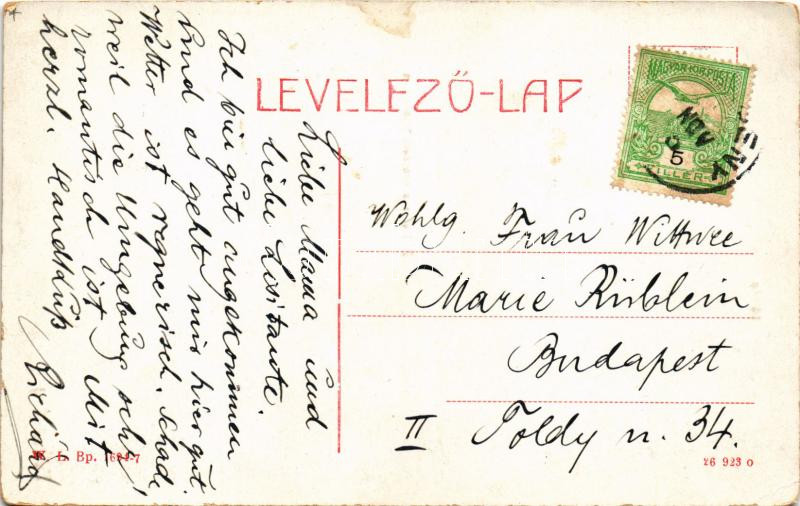 LEVELEZŐ-LAP
Liebe Mama und
liebe Lisitante.
Ich bin gut angekommen
und es geht mir hier gut.
Wetter ist regnerisch. Schade,
weil die Umgebung sehr
romantisch ist. Mit
herzl. Handkuß
Richárd
MAGYAR KIR. POSTA
5
FILLÉR
NOV
Wohlg. Frau Wittwee
Marie Rüblein
Budapest
II Toldy u. 34.
L. Bp.
26 923 0